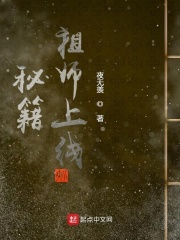 祖师上线
秘籍
夜无羡
◎
著
起点中文网